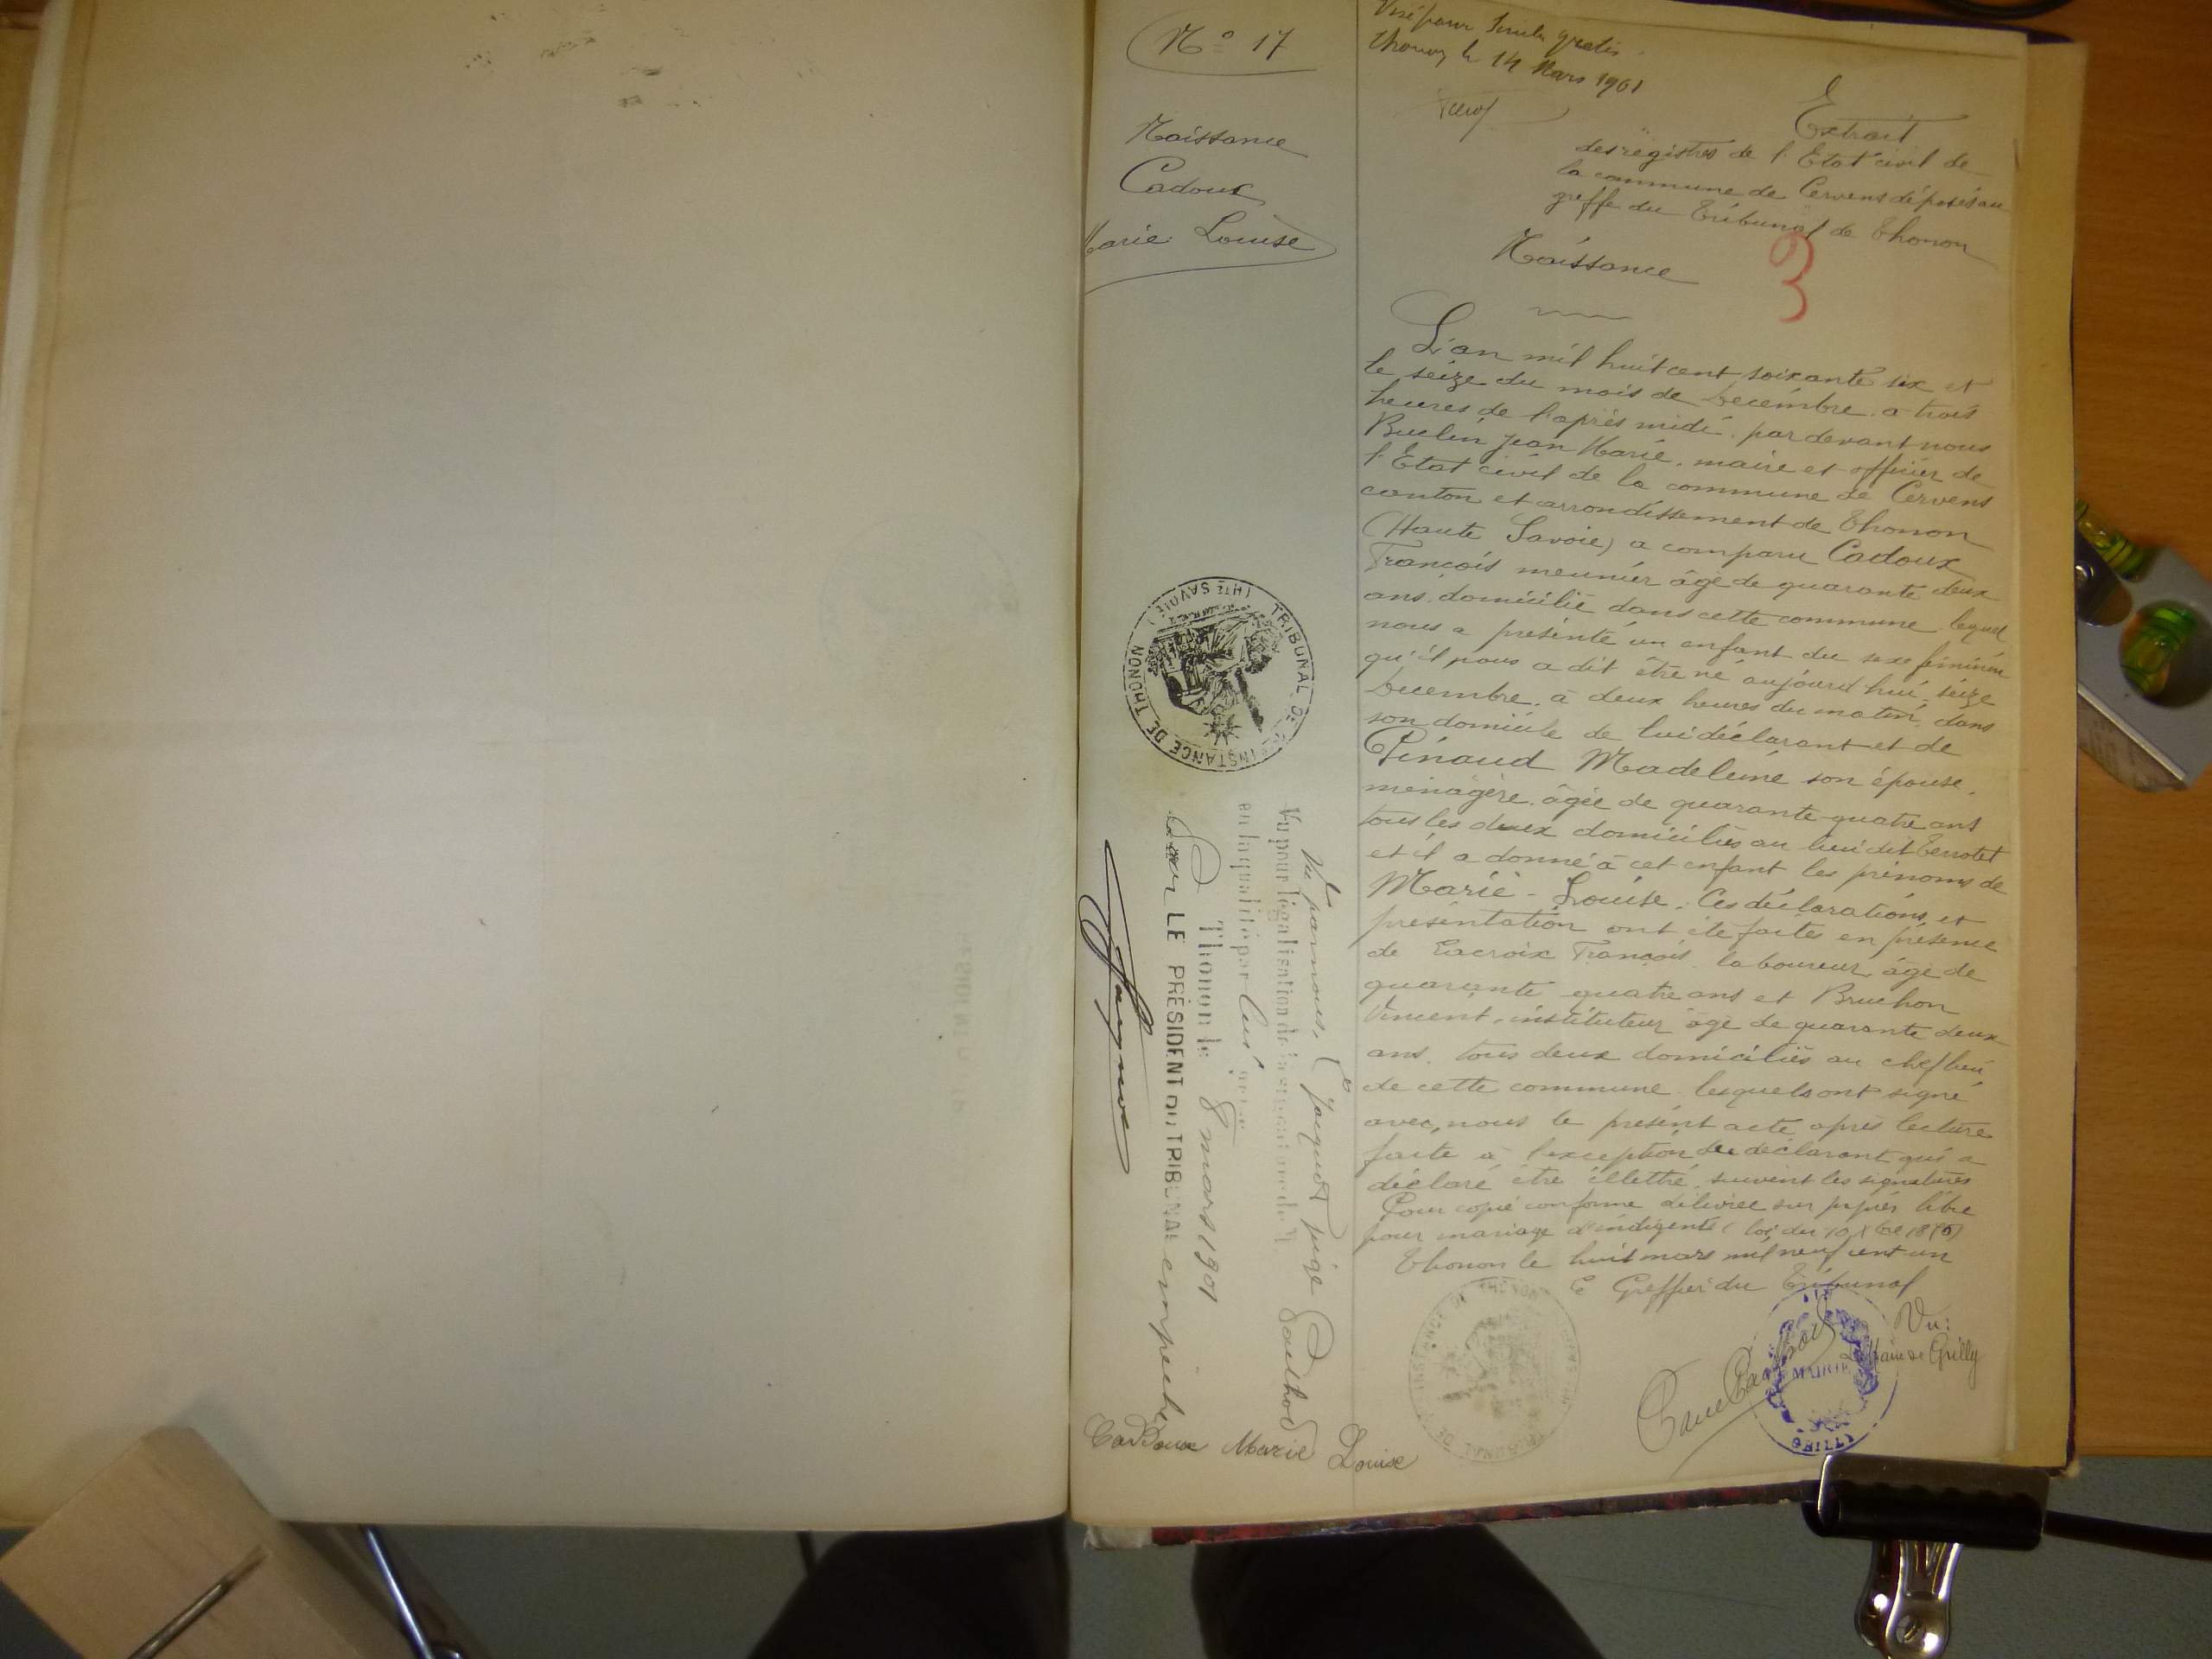 N° 17
Naissance
Cadoux
Marie Louise
Visé pour timbre gratis
Thonon le 14 Mars 1901
Extrait
des registres de l'Etat civil de
la commune de Cervens déposés au
greffe du Tribunal de Thonon
3
Naissance
L'an mil huit cent soixante six et
le seize du mois de Décembre à trois
heures de l'après midi, pardevant nous
Buclin Jean Marie, maire et officier de
l'Etat civil de la commune de Cervens
canton et arrondissement de Thonon
(Haute Savoie) a comparu Cadoux
François meunier âgé de quarante deux
ans, domicilié dans cette commune lequel
nous a présenté un enfant du sexe féminin
qu'il nous a dit être né aujourd'hui seize
Décembre, à deux heures du matin, dans
son domicile de lui déclarant et de
Pinaud Madeleine son épouse,
ménagère, âgée de quarante quatre ans
tous les deux domiciliés au lieu dit Terrotet
et il a donné à cet enfant les prénoms de
Marie-Louise. Ces déclarations et
présentation ont été faites en présence
de Lacroix François laboureur âgé de
quarante quatre ans et Bruchon
Vincent, instituteur âgé de quarante deux
ans, tous deux domiciliés au chef lieu
de cette commune lesquels ont signé
avec nous le présent acte après lecture
faite à l'exception du déclarant qui a
déclaré être illettré, suivent les signatures
Pour copie conforme délivrée sur papier libre
pour mariage d'indigents (loi du 10 Xbre 1850)
Thonon le huit mars mil neuf cent un
Le Greffier du Tribunal
Vu:
Le Maire de Grilly
MAIRIE
GRILLY
TRIBUNAL DE 1ère INSTANCE DE THONON (HTE SAVOIE)
Vu par nous, Jacquot juge
Vu pour légalisation de la signature de M Gailhod
en la qualité par lui prise
Thonon le 8 mars 1901
Pour LE PRÉSIDENT DU TRIBUNAL empêché
Jacquot
TRIBUNAL DE INSTANCE DE THONON
Caddoux Marie Louise